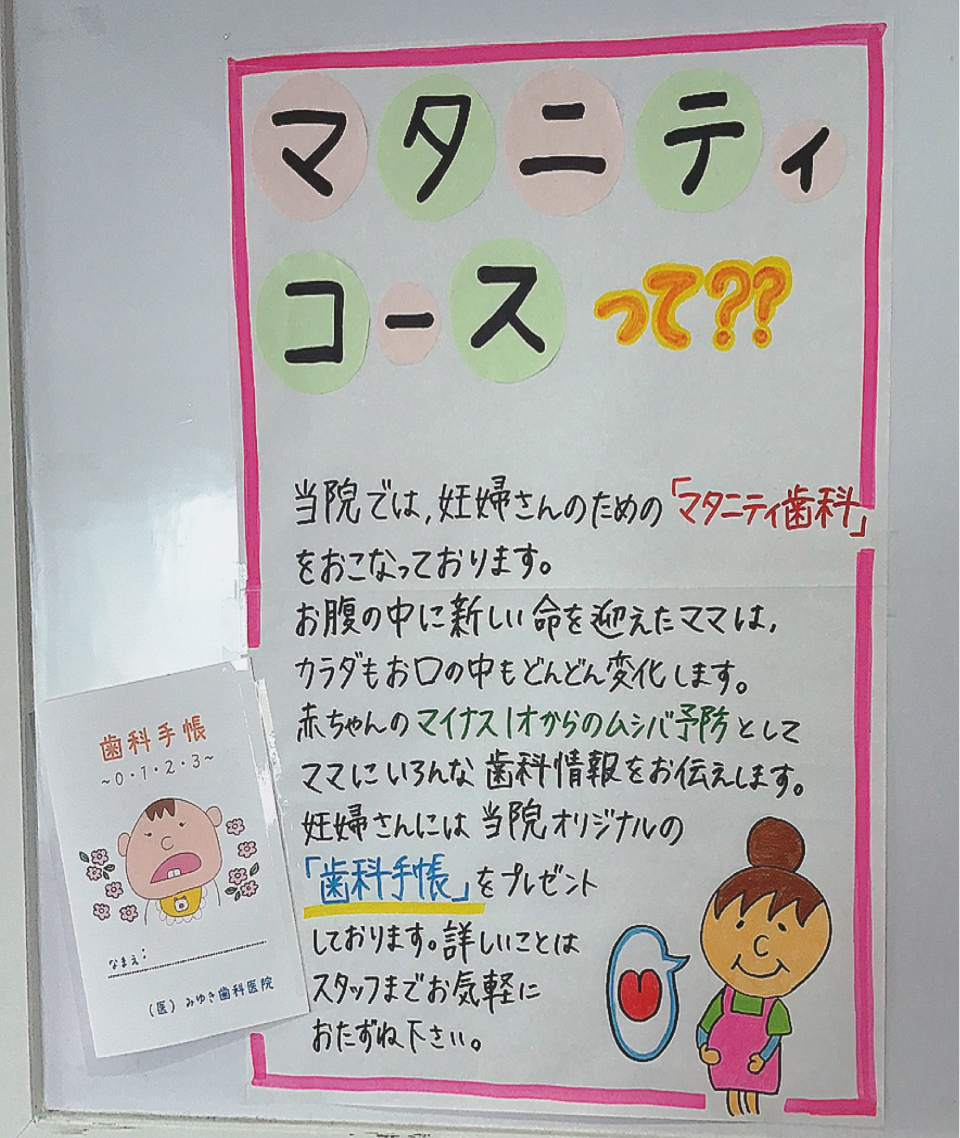 マタニティ
コースって??
当院では,妊婦さんのための「マタニティ歯科」
をおこなっております。
お腹の中に新しい命を迎えたママは,
カラダもお口の中もどんどん変化します。
赤ちゃんのマイナス1才からのムシバ予防として
ママにいろんな歯科情報をお伝えします。
妊婦さんには当院オリジナルの
「歯科手帳」をプレゼント
しております。詳しいことは
スタッフまでお気軽に
おたずね下さい。
歯科手帳
~0・1・2・3~
なまえ:
(医) みゆき歯科医院